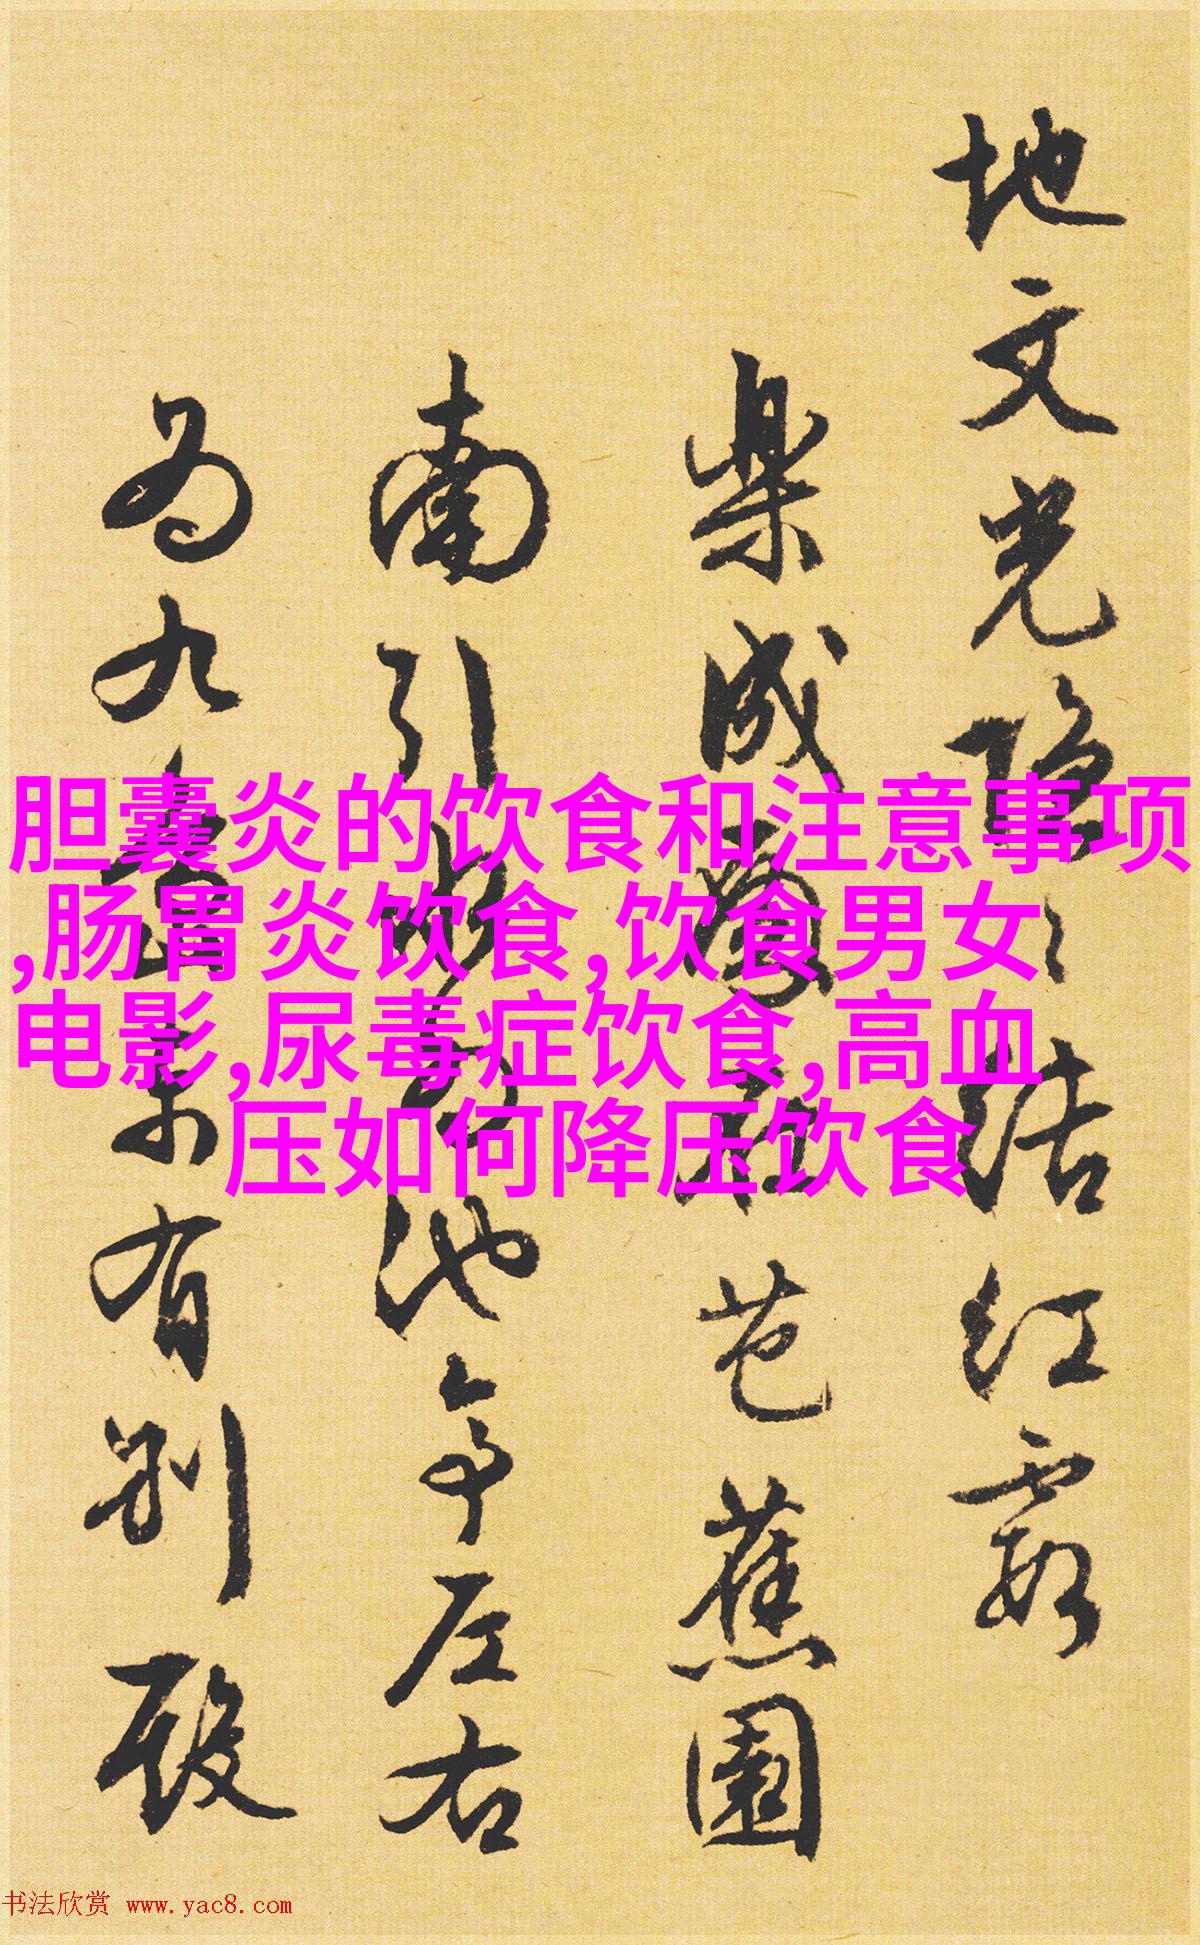 地文光隐〻结红霞
樂成劇社芭蕉園
南引水韵池亭左右
为九山木有别殿
胆囊炎的饮食和注意事项
,肠胃炎饮食,饮食男女
电影,尿毒症饮食,高血
压如何降压饮食
书法欣赏 www.yac8.com